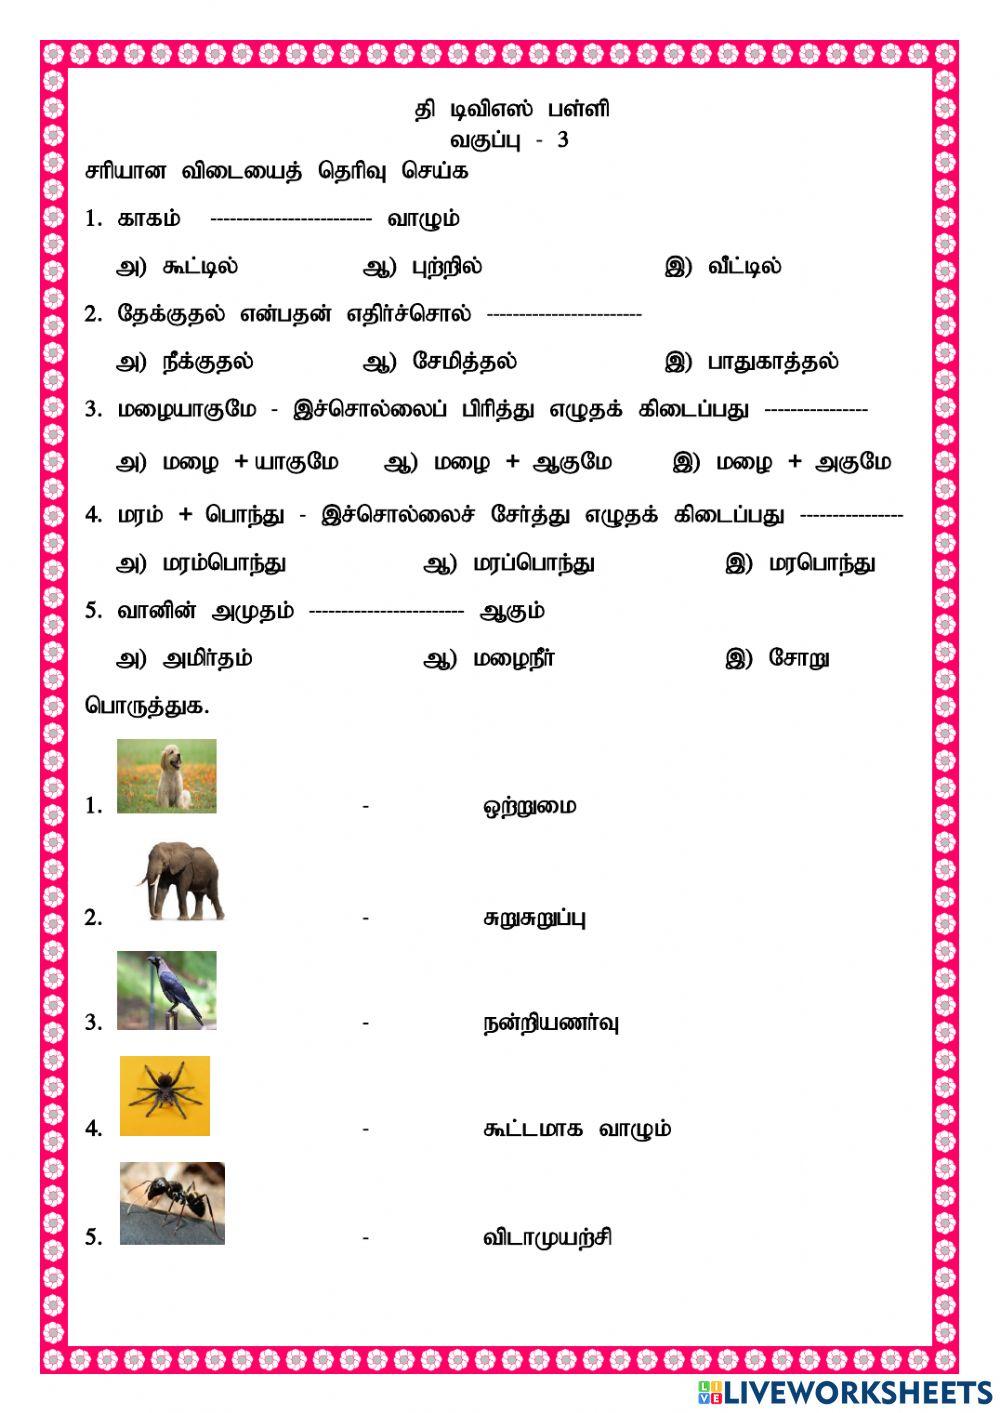 தி டிவிஎஸ் பள்ளி
வகுப்பு - 3
சரியான விடையைத் தெரிவு செய்க
1. காகம் ------------------------- வாழும்
அ) கூட்டில் ஆ) புற்றில் இ) வீட்டில்
2. தேக்குதல் என்பதன் எதிர்ச்சொல் ------------------------
அ) நீக்குதல் ஆ) சேமித்தல் இ) பாதுகாத்தல்
3. மழையாகுமே - இச்சொல்லைப் பிரித்து எழுதக் கிடைப்பது ----------------
அ) மழை + யாகுமே ஆ) மழை + ஆகுமே இ) மழை + அகுமே
4. மரம் + பொந்து - இச்சொல்லைச் சேர்த்து எழுதக் கிடைப்பது ----------------
அ) மரம்பொந்து ஆ) மரப்பொந்து இ) மரபொந்து
5. வானின் அமுதம் ------------------------ ஆகும்
அ) அமிர்தம் ஆ) மழைநீர் இ) சோறு
பொருத்துக.
1. - ஒற்றுமை
2. - சுறுசுறுப்பு
3. - நன்றியணர்வு
4. - கூட்டமாக வாழும்
5. - விடாமுயற்சி
LIVE LIVEWORKSHEETS